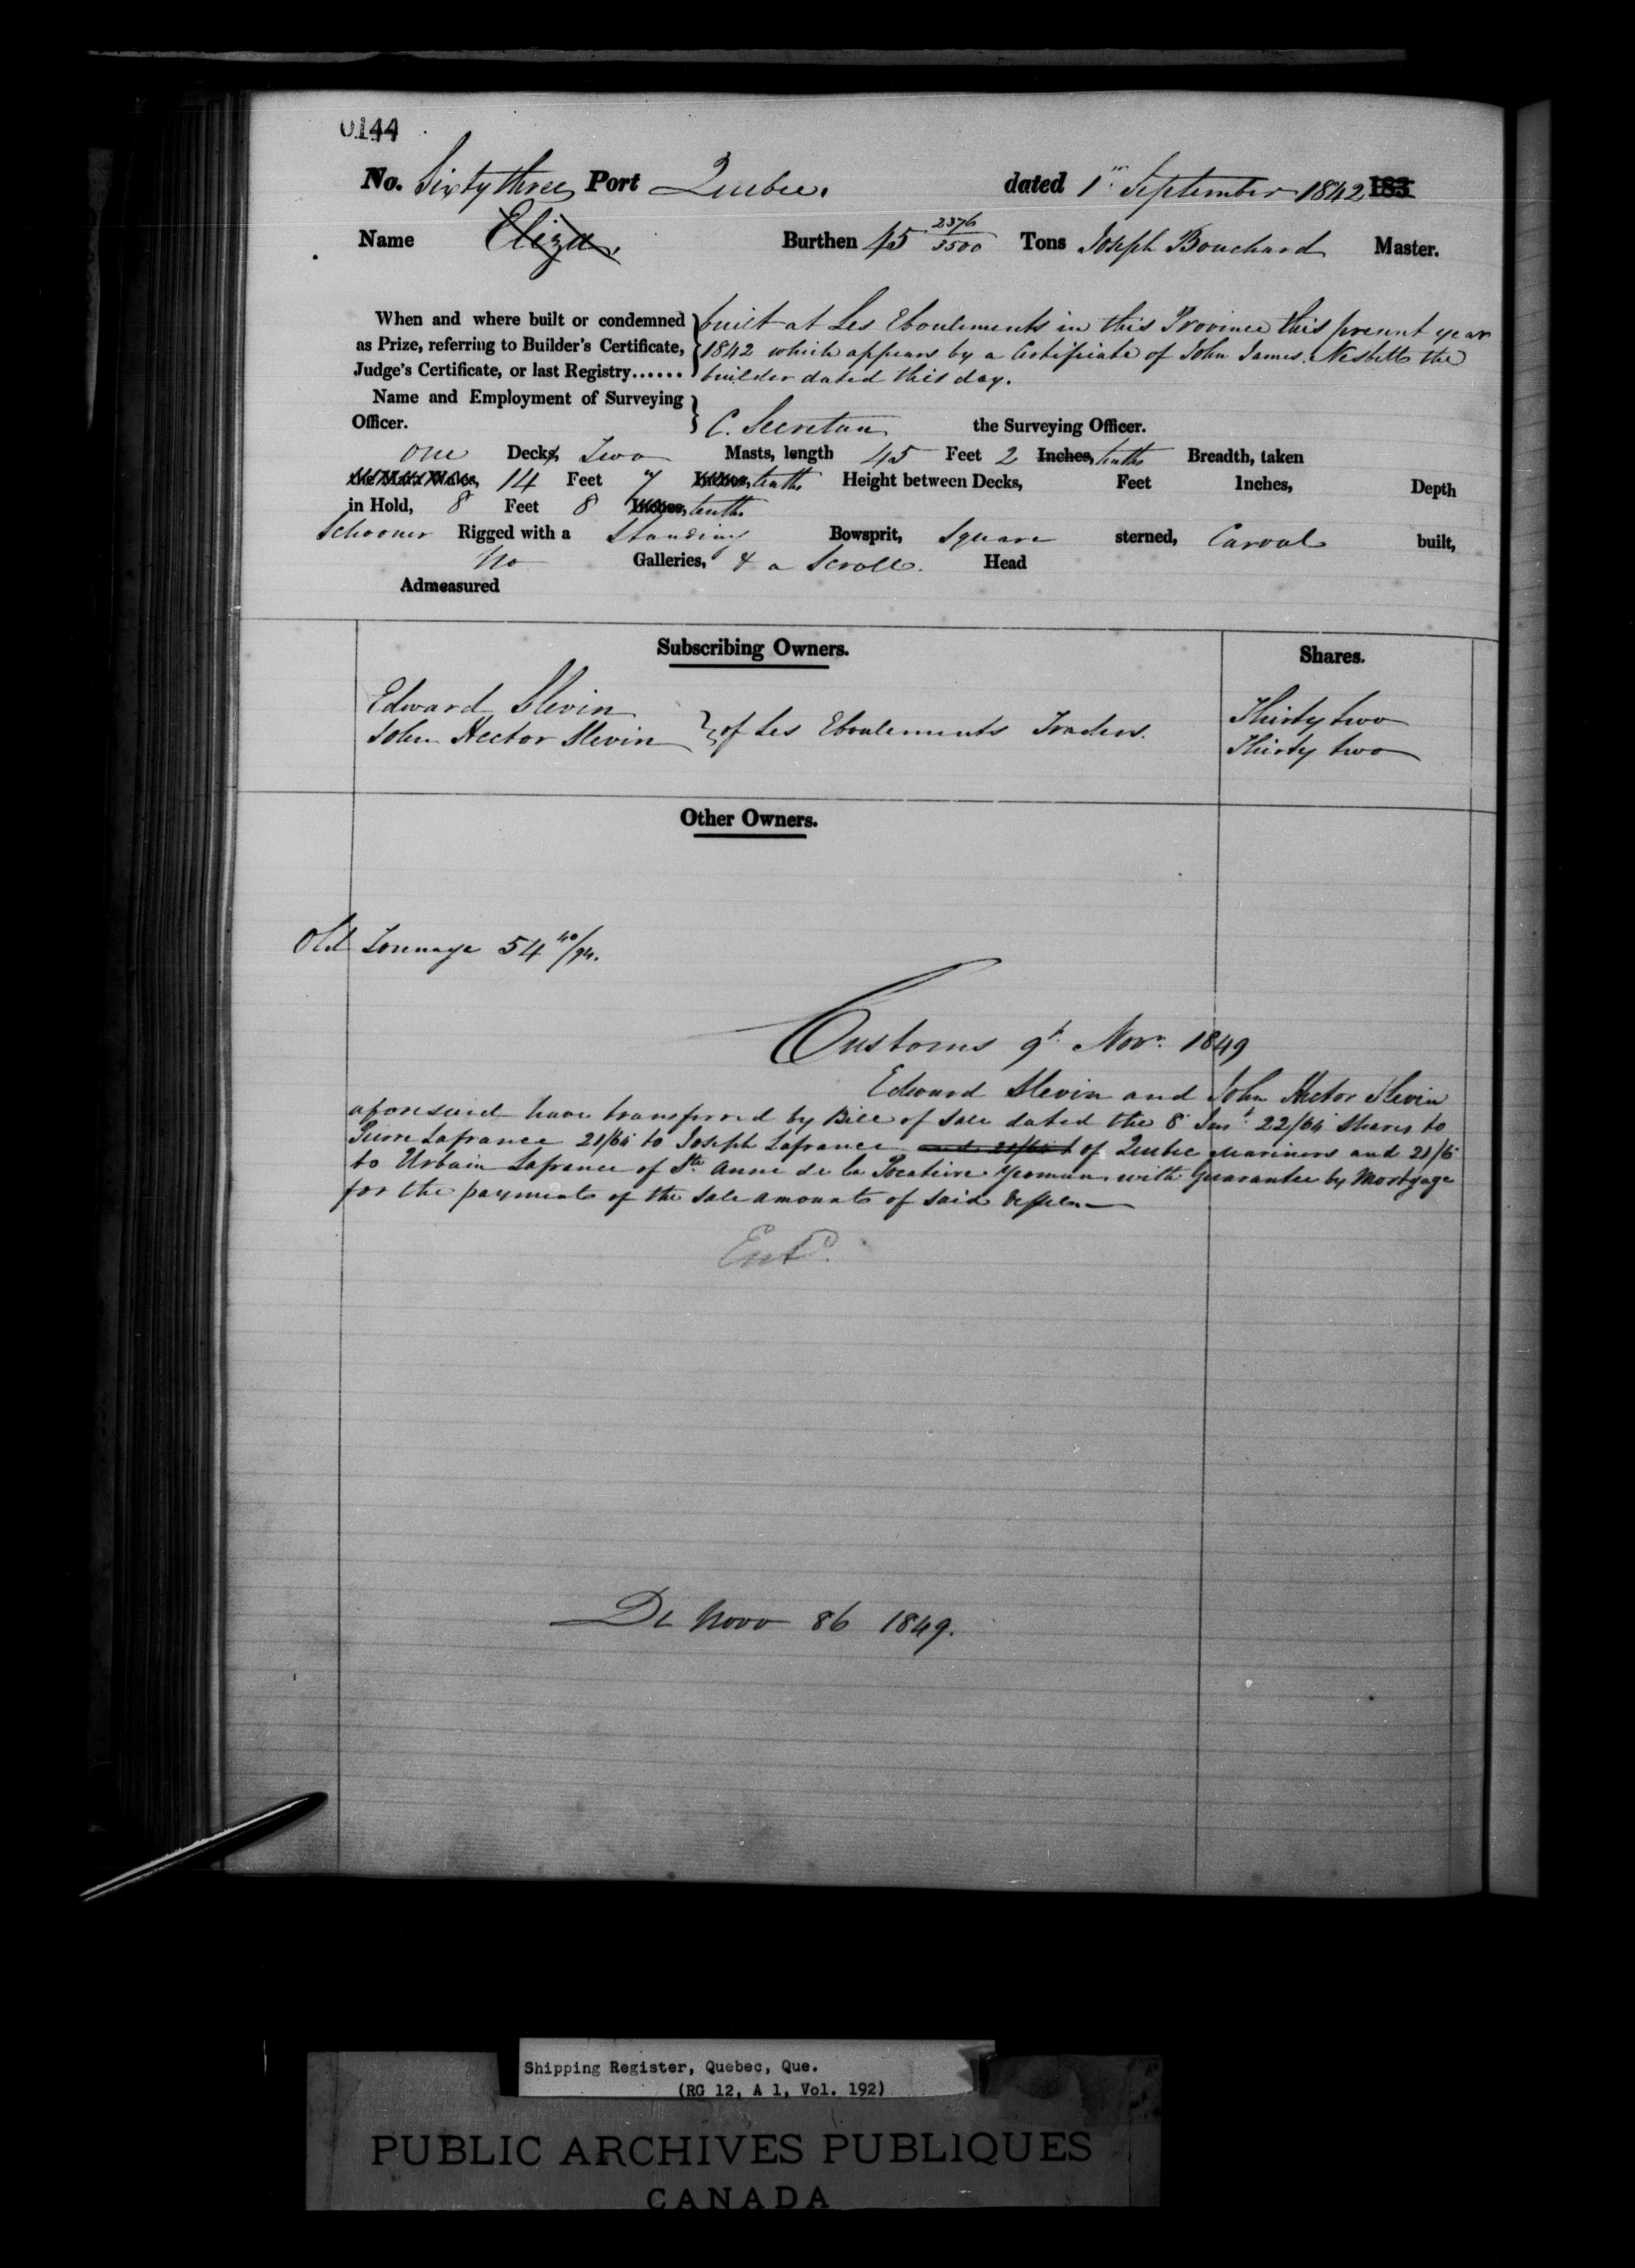 0144
No. Sixty three Port Quebec. dated 1st September 1842 183
Name Eliza. Burthen 45 2376/3500 Tons Joseph Bouchard Master.
When and where built or condemned built at Les Eboulements in this Province this present year
as Prize, referring to Builder's Certificate, 1842 which appears by a Certificate of John James Nesbitt the
Judge's Certificate, or last Registry...... builder dated this day.
Name and Employment of Surveying
Officer. C. Secretan the Surveying Officer.
One Decks, Two Masts, length 45 Feet 2 Inches, tenths Breadth, taken
14 Feet 7 Inches, tenths Height between Decks, Feet Inches, Depth
in Hold, 8 Feet 8 Inches, tenths
Schooner Rigged with a Standing Bowsprit, Square sterned, Carvel built,
No Galleries, & a Scroll Head
Admeasured
Subscribing Owners. Shares.
Edward Slevin Thirty two
John Hector Slevin } of Les Eboulements Traders. Thirty two
Other Owners.
Old Tonnage 54 40/94.
Customs 9th Novr. 1849
Edward Slevin and John Hector Slevin
aforesaid have transferred by Bill of Sale dated the 8 Inst 22/64 Shares to
Pierre Lafrance 21/64 to Joseph Lafrance and 21/64 of Quebec Mariners and 21/6
to Urbain Lafrance of Ste Anne de la Pocatiere Yeoman with guarantee by Mortgage
for the payment of the sale amount of said Vessel.—
Entd.
De Novo 86 1849.
Shipping Register, Quebec, Que.
(RG 12, A 1, Vol. 192)
PUBLIC ARCHIVES PUBLIQUES
CANADA